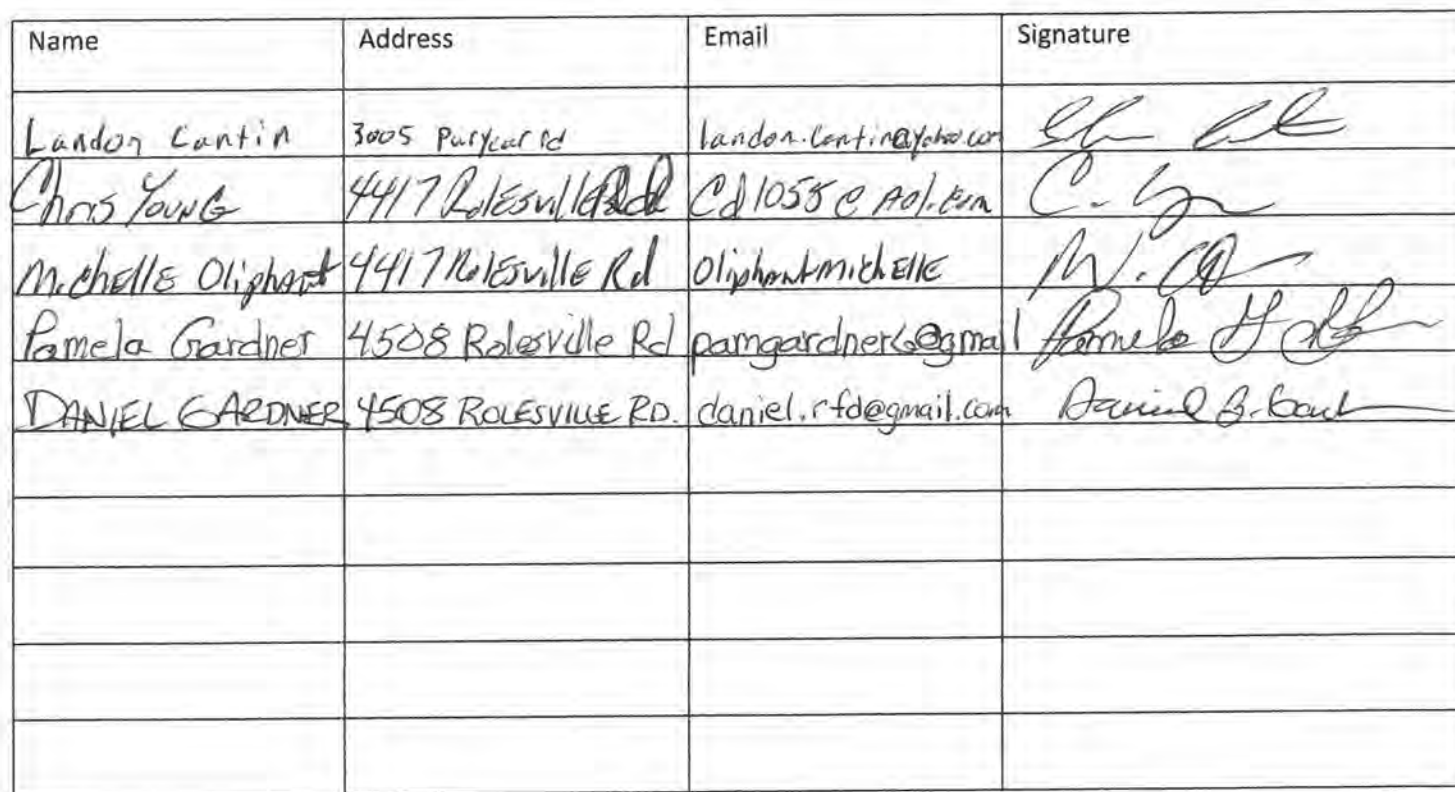 Name Address Email Signature
Landon Cantin 3005 Puryear rd landon.cantin@yahoo.com
Chris Young 4417 Rolesville Rd Cd1055@AOl.com C.
Michelle Oliphant 4417 Rolesville Rd OliphantmichEllE M.
Pamela Gardner 4508 Rolesville Rd pamgardner6@gmail Pamela
DANIEL GARDNER 4508 ROLESVILLE RD. daniel.rfd@gmail.com Daniel B.